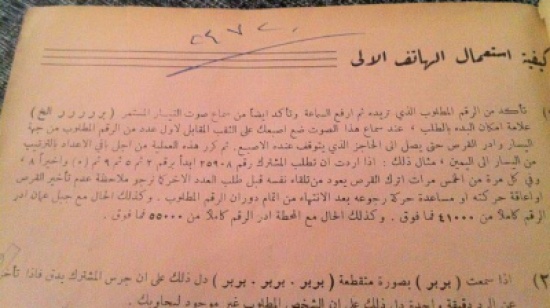 ٢٩٧٢٠
كيفية استعمال الهاتف الآلي
تأكد من الرقم المطلوب الذي تريده ثم ارفع السماعة وتأكد ايضاً من سماع صوت التيار المستمر ( بر ر ر ر ر الخ )
علامة امكان البدء بالطلب ، عند سماع هذا الصوت ضع اصبعك على الثقب المقابل لاول عدد من الرقم المطلوب من جهة
اليسار وادر القرص حتى يصل الى الحاجز الذي يتوقف عنده الاصبع . ثم كرر هذه العملية من اجل باقي الاعداد بالترتيب
من اليسار الى اليمين ، مثال ذلك : اذا اردت ان تطلب المشترك رقم ٢٥٩٠٨ ابدأ برقم ٢ ثم ٥ ثم ٩ ثم (٠) واخيراً ٨ ،
وفي كل مرة من الخمس مرات اترك القرص يعود من تلقاء نفسه قبل طلب العدد الآخر كما نرجو ملاحظة عدم تأخير القرص
او اعاقة حركته او مساعدة حركة رجوعه بعد الانتهاء من اتمام دوران الرقم المطلوب . وكذلك الحال مع جبل عمان ادر
الرقم كاملاً من ٤١٠٠٠ فما فوق . وكذلك الحال مع المحطة ادر الرقم كاملاً من ٥٥٠٠٠ فما فوق .
٢) اذا سمعت ( بربر ) بصورة متقطعة ( بربر . بربر . بربر ) دل ذلك على ان جرس المشترك يدق فاذا تأخر
عن الرد دقيقة واحدة دل ذلك على ان الشخص المطلوب غير موجود ليجاوبك .